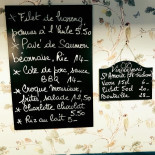 * Filet de hareng
pommes à l'huile 5.50
* Pavé de Saumon
béarnaise, Riz 14.-
* Côte de porc sauce
BBQ 14.-
* Croque monsieur,
frites, salade 12.50
* Charlotte chocolat 5.50
* Riz au lait 5.-
St Amour
Verre
Bouteille 29.-